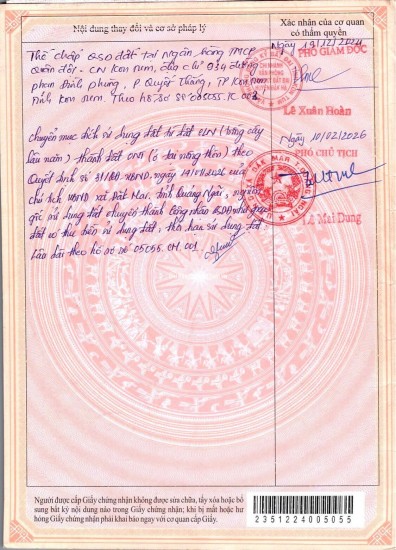 Nội dung thay đổi và cơ sở pháp lý
Xác nhận của cơ quan
có thẩm quyền
Thế chấp QSD đất tại Ngân hàng TMCP
Quân đội - CN Kon Tum, địa chỉ 034 đường
Phan Đình Phùng, P Quyết Thắng, TP Kon Tum
Tỉnh Kon Tum. Theo hồ sơ số 005055.TC.003
Ngày 19/12/2024
PHÓ GIÁM ĐỐC
Lê Xuân Hoàn
Chuyển mục đích sử dụng đất từ đất CLN (trồng cây
lâu năm) thành đất ONT (ở tại nông thôn) theo
Quyết định số /QĐ-UBND, ngày của
chủ tịch UBND xã Đăk Mar, tỉnh Quảng Ngãi, nguồn
gốc sử dụng đất chuyển thành Công nhận QSDĐ như giao
đất có thu tiền sử dụng đất, thời hạn sử dụng đất
Lâu dài theo hồ sơ số 05055.CM.001
Ngày 10/02/2026
PHÓ CHỦ TỊCH
Lê Mai Dung
Người được cấp Giấy chứng nhận không được sửa chữa, tẩy xóa hoặc bổ
sung bất kỳ nội dung nào trong Giấy chứng nhận; khi bị mất hoặc hư
hỏng Giấy chứng nhận phải khai báo ngay với cơ quan cấp Giấy.
2351224005055